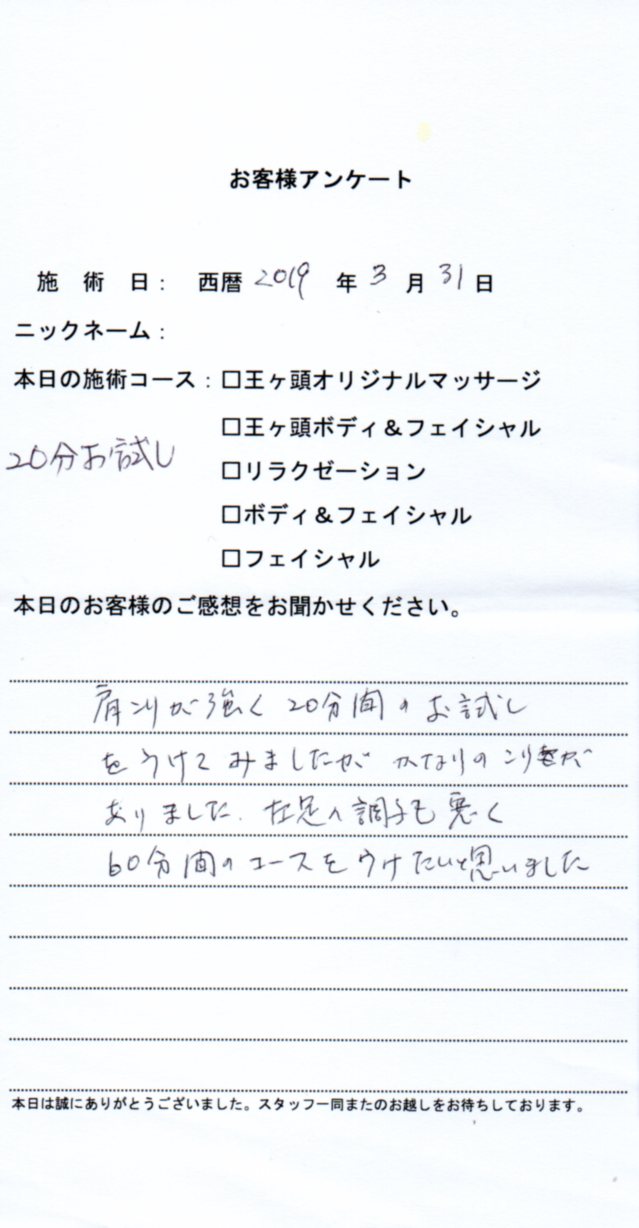 お客様アンケート
施 術 日： 西暦 2019 年 3 月 31 日
ニックネーム：
本日の施術コース：□王ヶ頭オリジナルマッサージ
□王ヶ頭ボディ＆フェイシャル
20分お試し
□リラクゼーション
□ボディ＆フェイシャル
□フェイシャル
本日のお客様のご感想をお聞かせください。
肩こりが強く 20分間のお試し
をうけてみましたが かなりのこりが
ありました. 足の調子も悪く
60分間のコースをうけたいと思いました
本日は誠にありがとうございました。スタッフ一同またのお越しをお待ちしております。